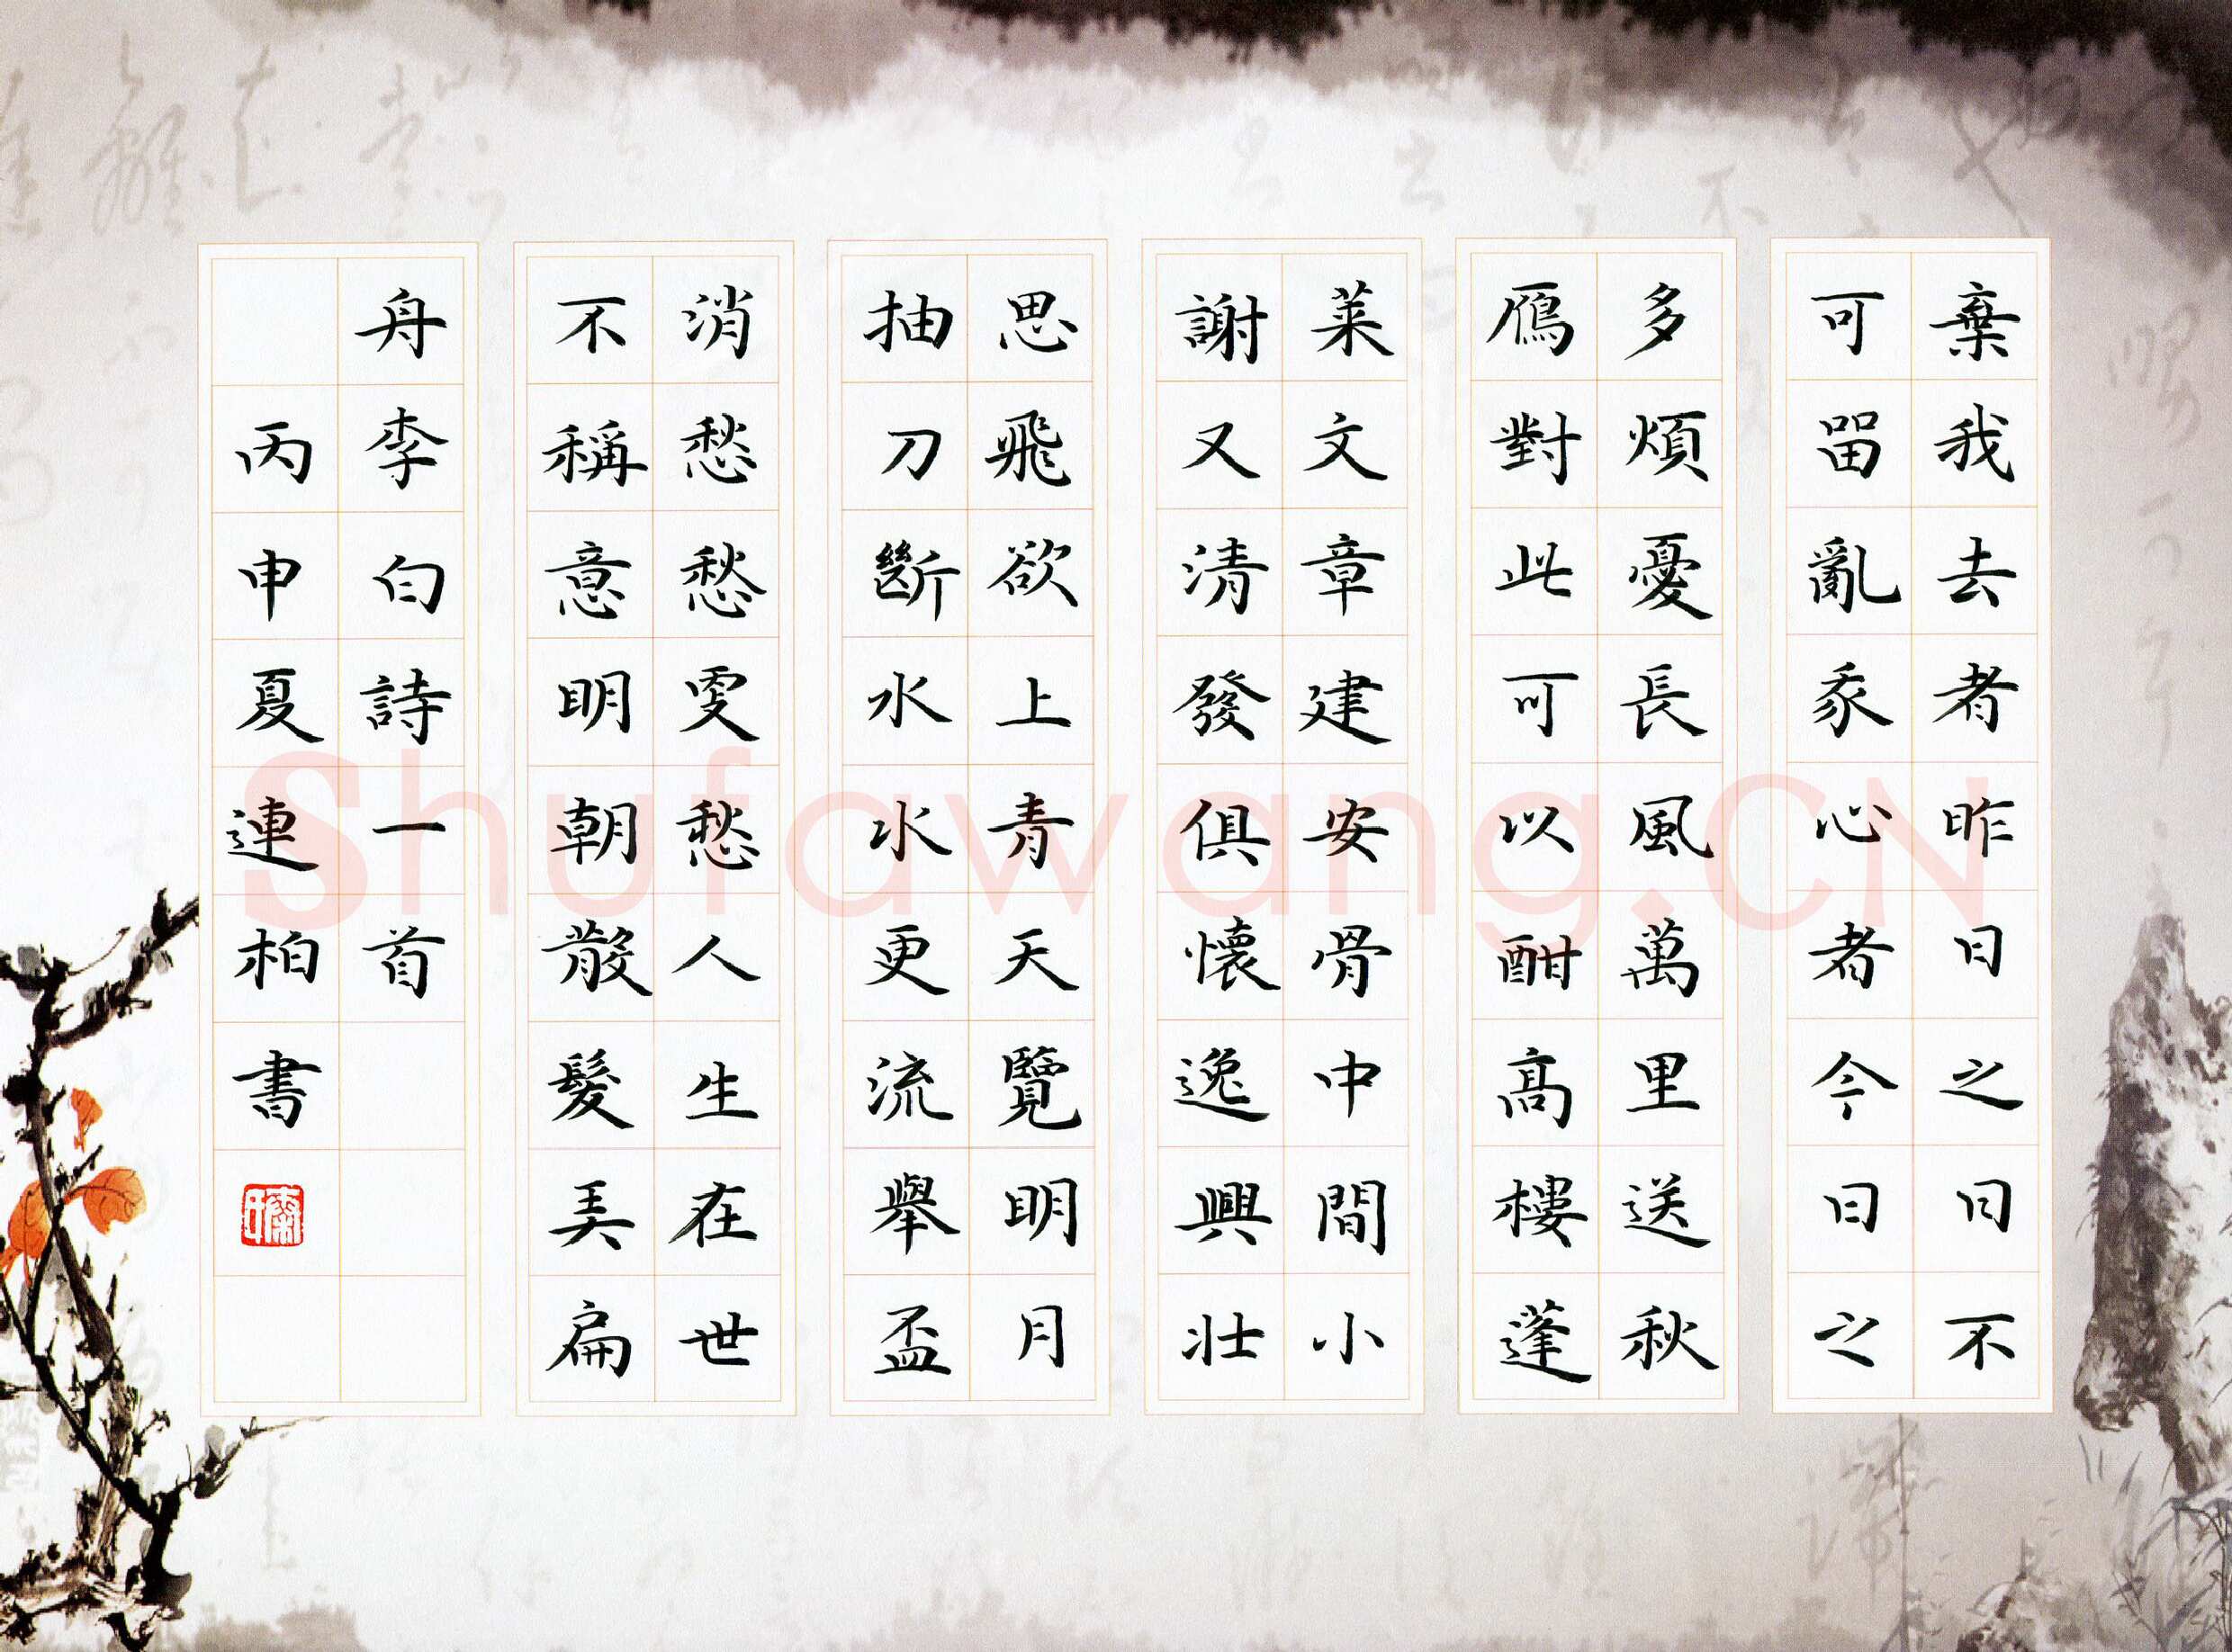 棄我去者昨日之日不
可留亂我心者今日之日
多煩憂長風萬里送秋
鴈對此可以酣高樓蓬
萊文章建安骨中間小
謝又清發俱懷逸興壯
思飛欲上青天覽明月
抽刀斷水水更流舉盃
消愁愁更愁人生在世
不稱意明朝散髮弄扁
舟李白詩一首
丙申夏連柏書
Shufawang.CN